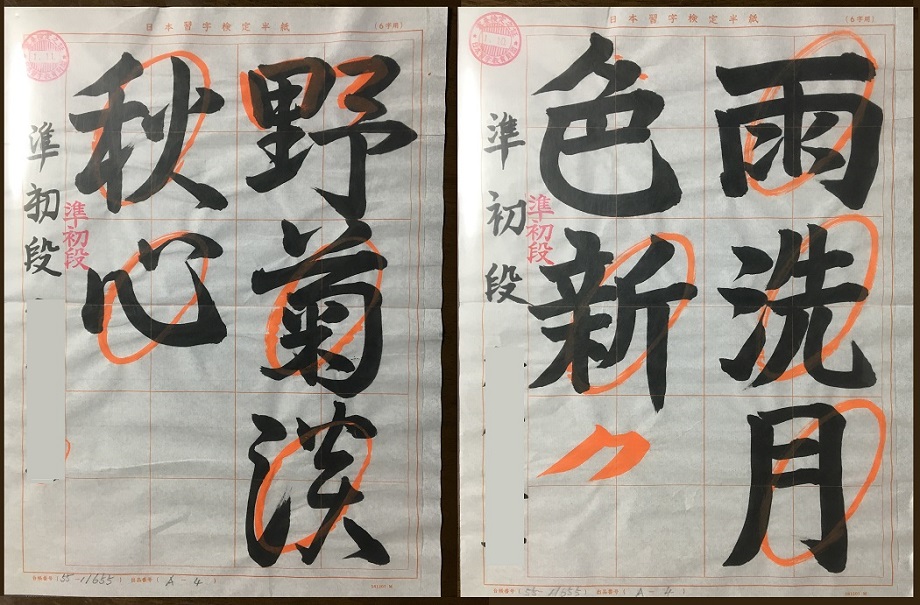 日本習字検定半紙
(6字用)
野菊淡
秋心
準初段
準初段
1.11
(55-11655)
出品番号 (A-4)
日本習字検定半紙
(6字用)
雨洗月
色新
準初段
準初段
1.10
(55-11655)
出品番号 (A-4)